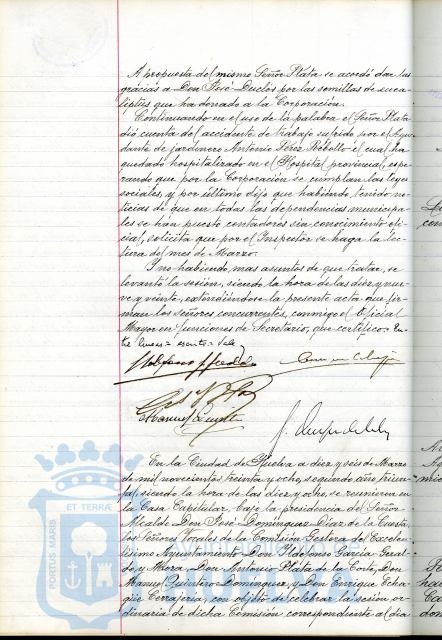 A propuesta del mismo Señor Plata se acordó dar las
gracias a Don José Duclós por las semillas de euca-
liptus que ha donado a la Corporación.
Continuando en el uso de la palabra el Señor Plata
dió cuenta del accidente de trabajo sufrido por el Ayu-
dante de jardinero Antonio Pérez Rebollo el cual ha
quedado hospitalizado en el Hospital provincial, espe-
rando que por la Corporación se cumplan las leyes
sociales, y por último dijo que habiendo tenido no-
ticias de que en todas las dependencias municipa-
les se han puesto contadores sin conocimiento ofi-
cial, solicita que por el Inspector se haga la lec-
tura del mes de Marzo.
Y no habiendo mas asuntos de que tratar, se
levantó la sesión, siendo la hora de las diez y nue-
ve y veinte, extendiéndose la presente acta que fir-
man los señores concurrentes, conmigo el Oficial
Mayor en funciones de Secretario, que certifico= En-
tre lineas= escrito= Vale
En la Ciudad de Huelva a diez y seis de Marzo
de mil novecientos treinta y ocho, segundo año triun-
fal, siendo la hora de las diez y ocho, se reunieron en
la Casa Capitular bajo la presidencia del Señor
Alcalde Don José Domínguez Díaz de la Cuesta,
los Señores Vocales de la Comisión Gestora del Excelen-
tísimo Ayuntamiento Don Ildefonso García Geral-
do y Mora, Don Antonio Plata de la Corte, Don
Manuel Quintero Domínguez, y Don Enrique Echa-
güe Cerrajería, con objeto de celebrar la sesión or-
dinaria de dicha Comisión correspondiente al día
PORTUS MARIS ET TERRAE